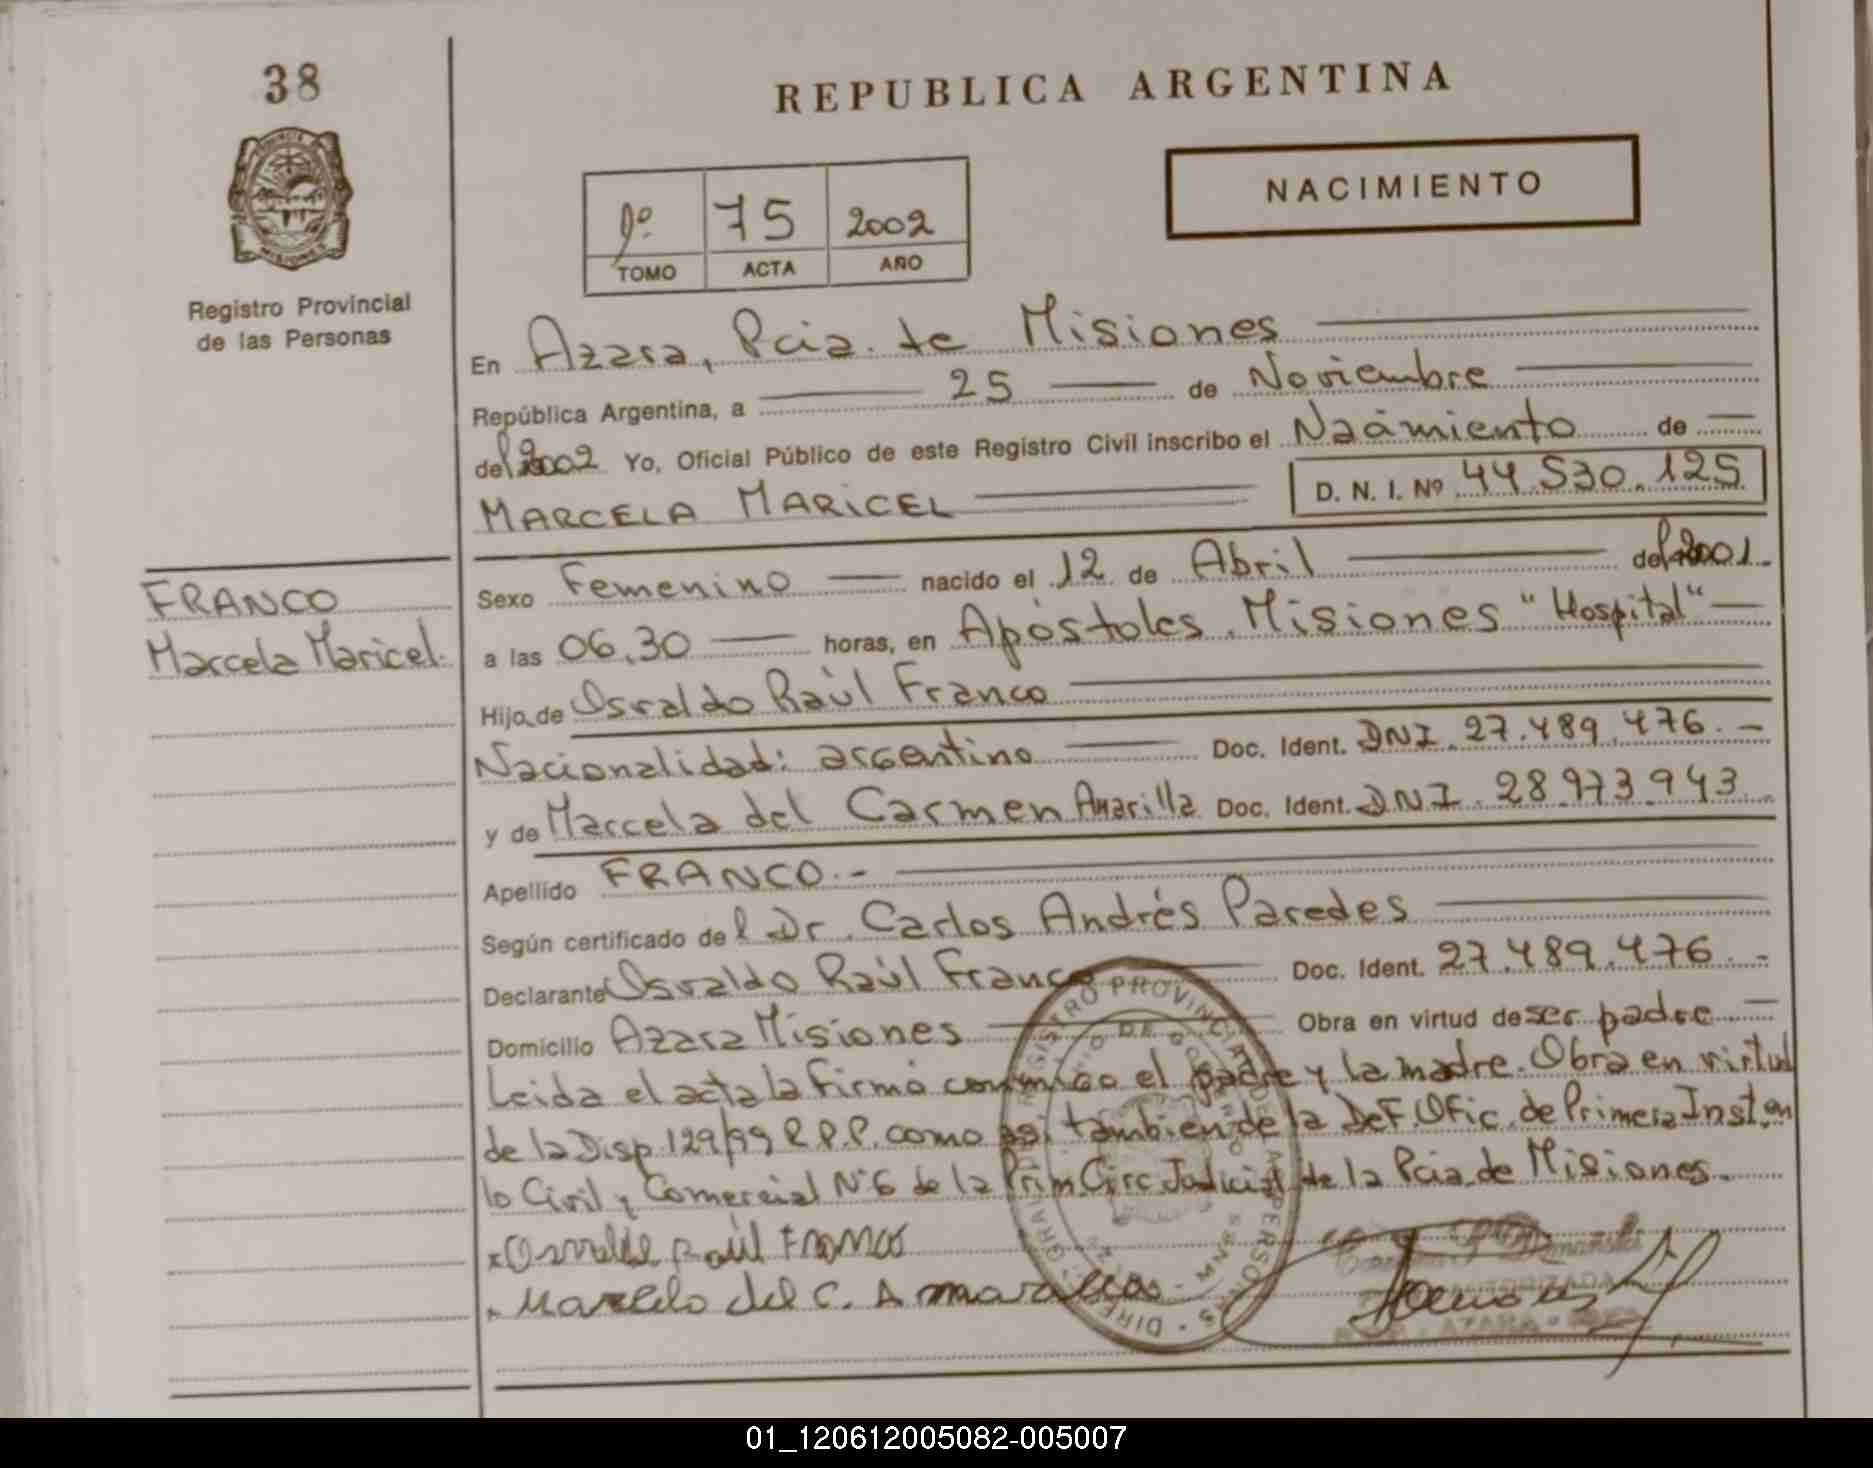 38
REPUBLICA ARGENTINA
NACIMIENTO
1º 75 2002
TOMO ACTA AÑO
Registro Provincial
de las Personas
En Azara, Pcia. de Misiones
República Argentina, a 25 de Noviembre
del 2002 Yo, Oficial Público de este Registro Civil inscribo el Nacimiento de
MARCELA MARICEL D. N. I. Nº 44.530.125
FRANCO
Marcela Maricel.
Sexo Femenino nacido el 12 de Abril del 2001.-
a las 06,30 horas, en Apóstoles Misiones "Hospital"
Hija de Osvaldo Raúl Franco
Nacionalidad: argentino Doc. Ident. DNI 27.489.476.-
y de Marcela del Carmen Amarilla Doc. Ident. DNI 28.973.943
Apellido FRANCO.-
Según certificado del Dr. Carlos Andrés Paredes
Declarante Osvaldo Raúl Franco Doc. Ident. 27.489.476.-
Domicilio Azara Misiones Obra en virtud de ser padre
Leida el acta la firmó conmigo el padre y la madre. Obra en virtud
de la Disp. 129/99 R.P.P. como asi tambien de la Def. Ofic. de Primera Inst. en
lo Civil y Comercial Nº6 de la Prim. Circ. Judicial de la Pcia. de Misiones.
x Osvaldo Raúl Franco
Marcela del C. Amarilla
REGISTRO PROVINCIAL DE LAS PERSONAS
AUTORIZADA
AZARA
01_120612005082-005007